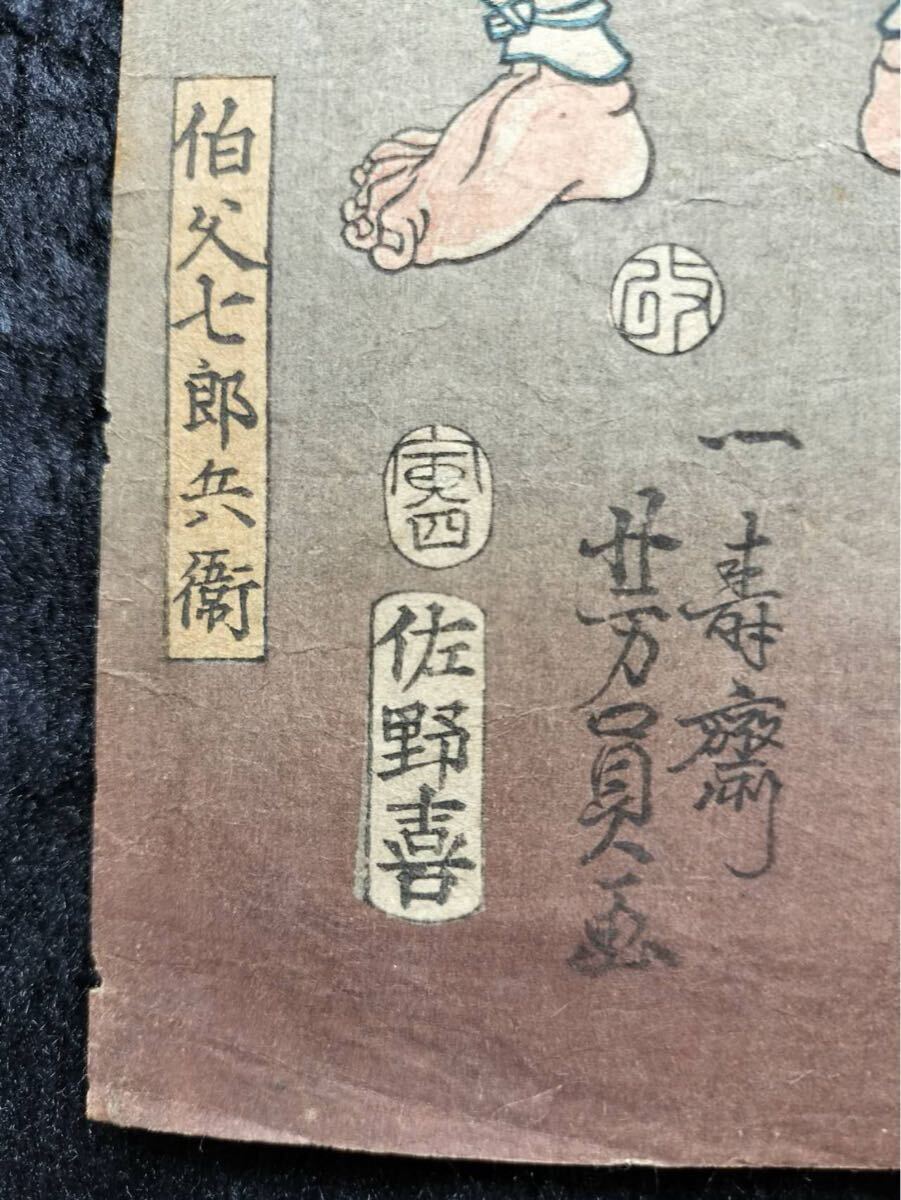 改
一壽齋
芳員画
寅四
佐野喜
伯父七郎兵衞